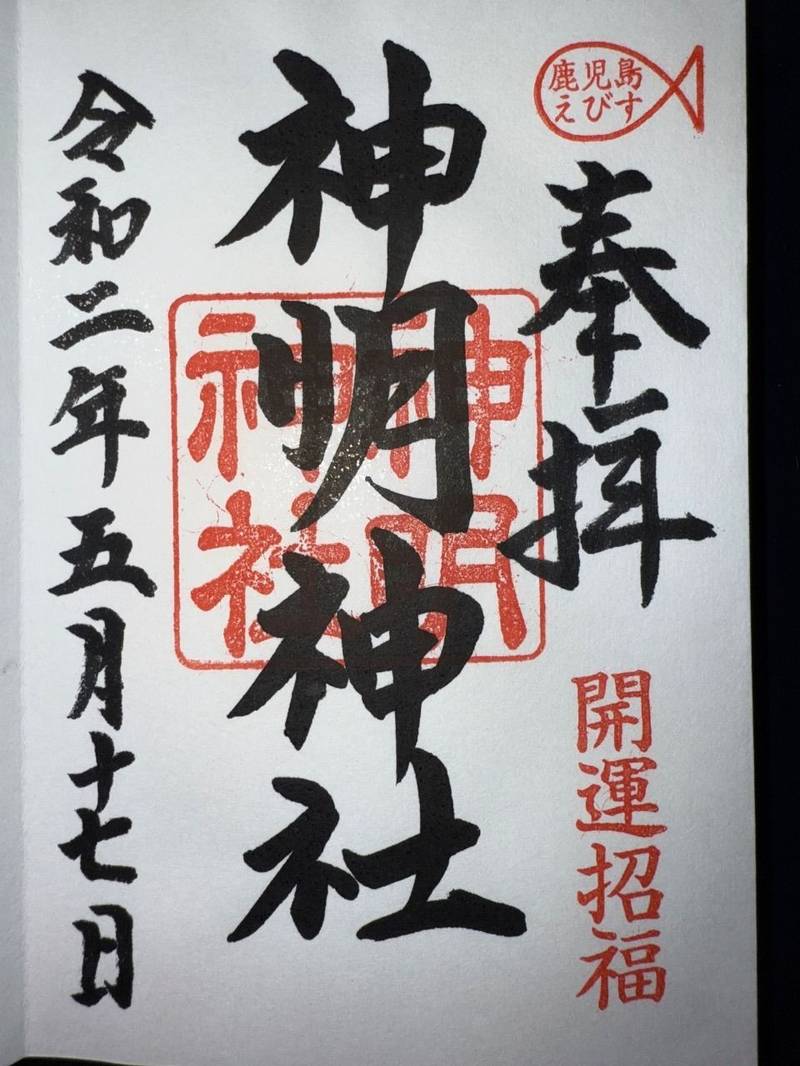 鹿児島
えびす
奉拝
開運招福
神明神社
神明
神社
令和二年五月十七日